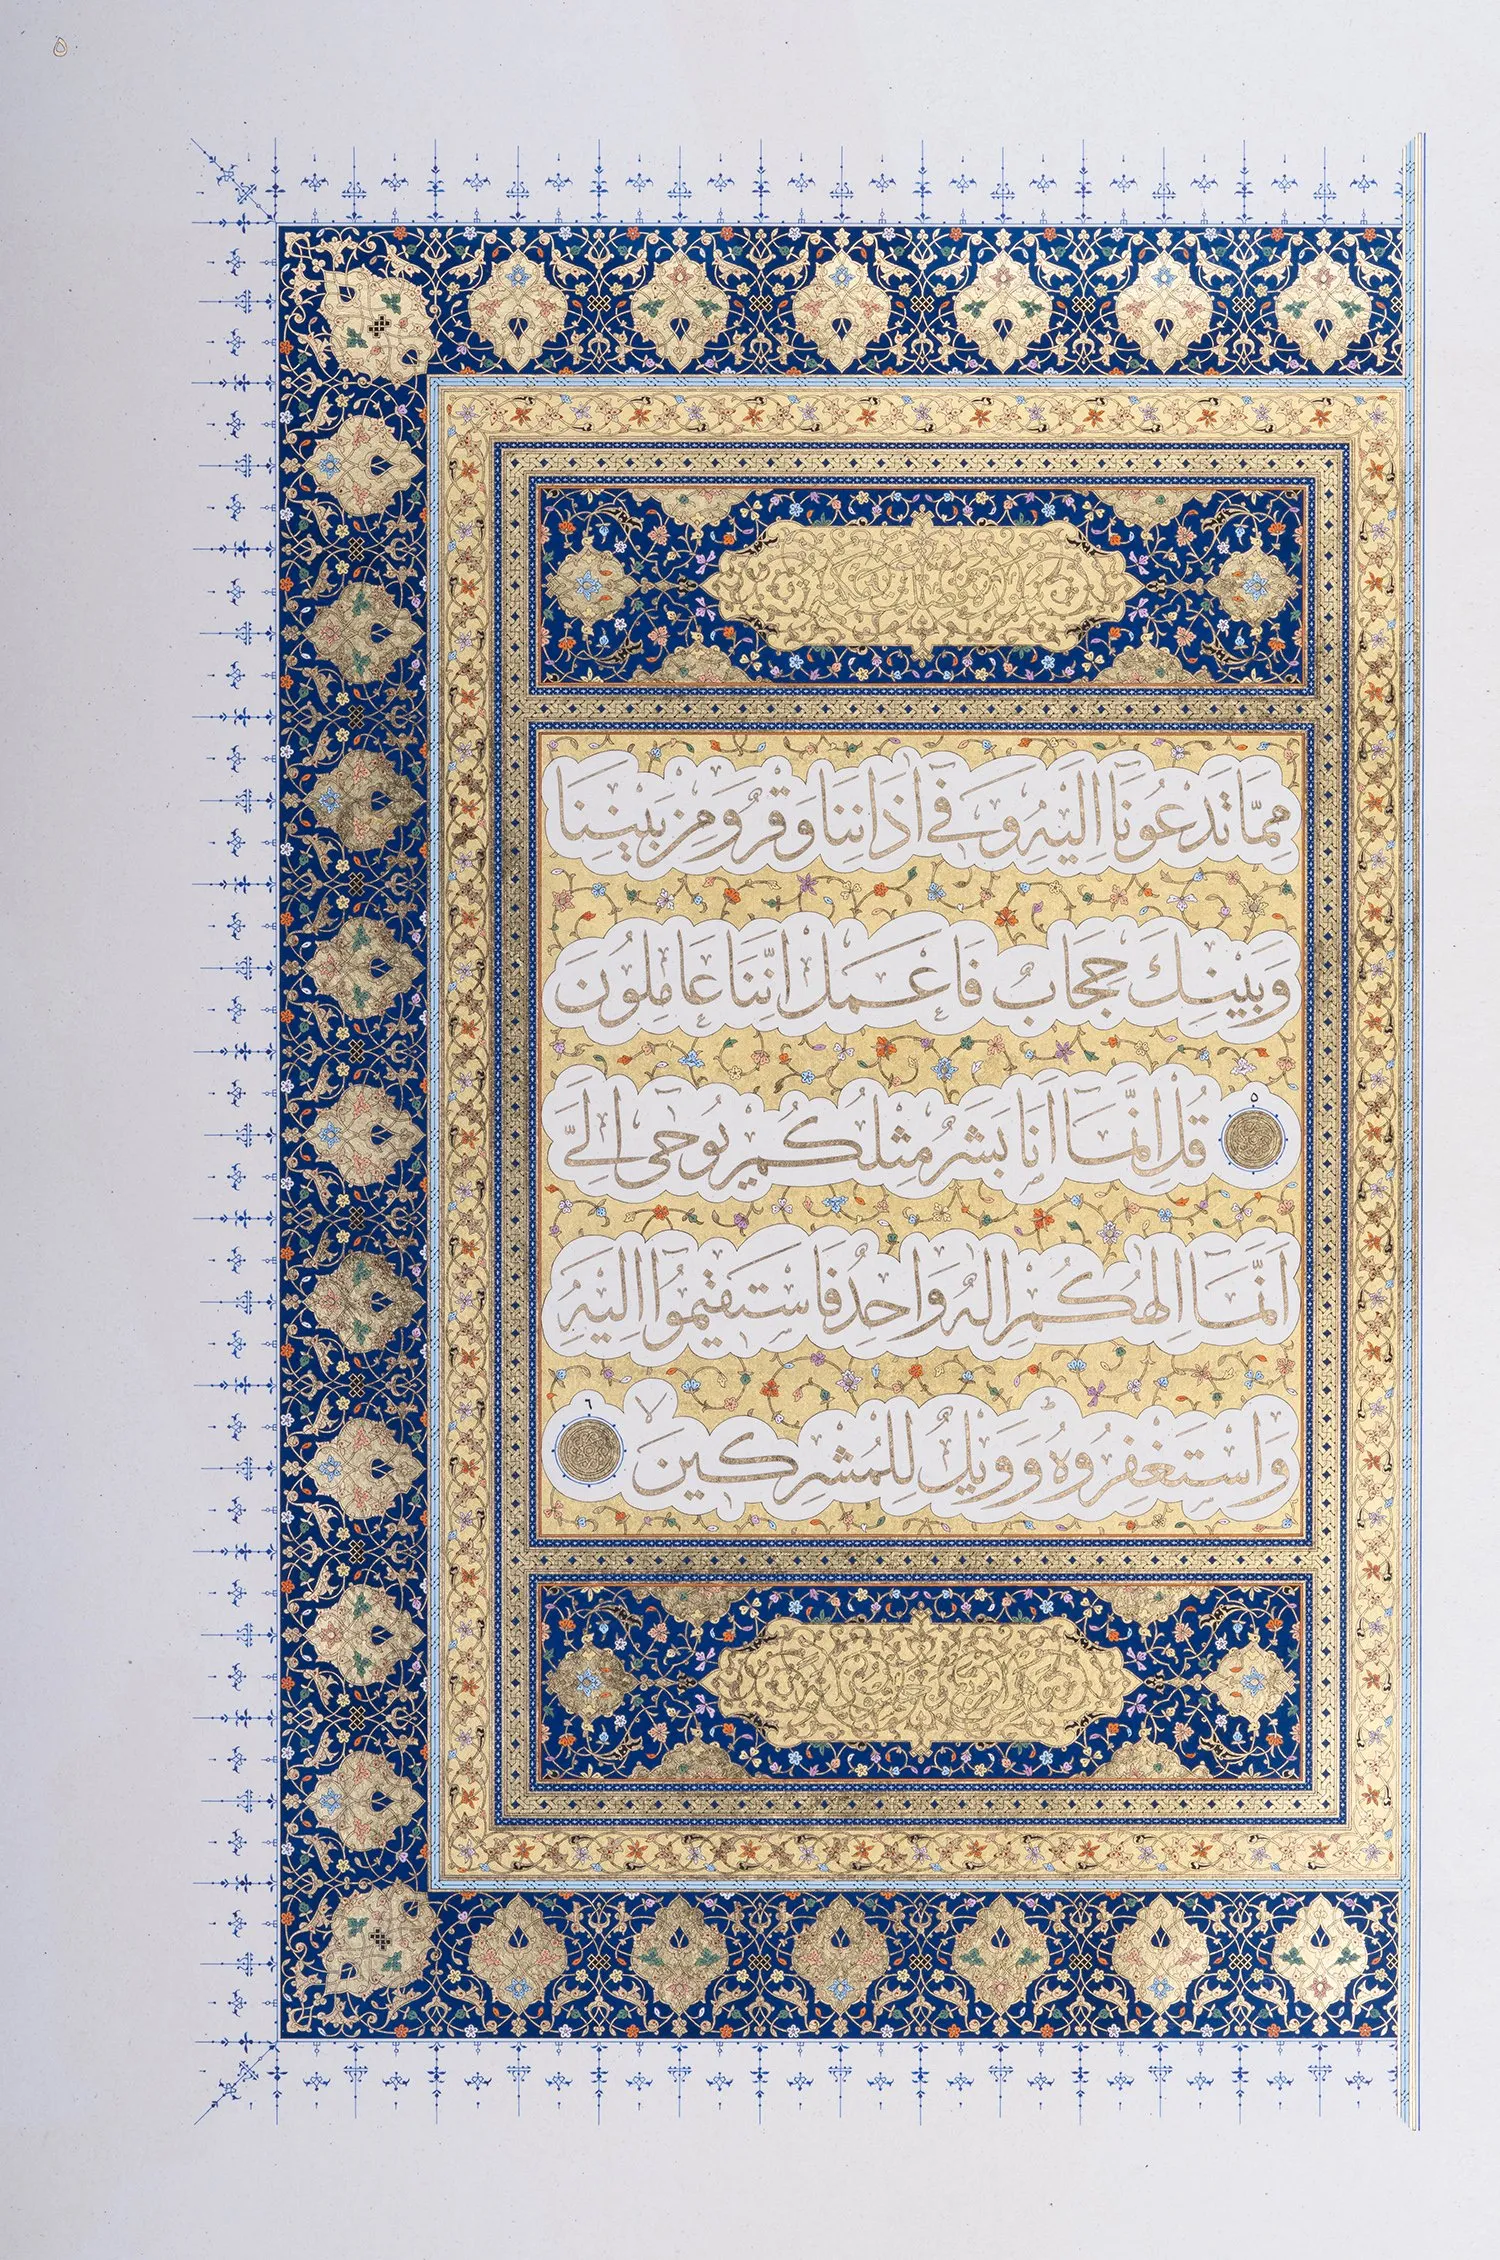 ٥
مِمَّا تَدْعُونَآ اِلَيْهِ وَفٓى اٰذَانِنَا وَقْرٌ وَمِنْ بَيْنِنَا
وَبَيْنِكَ حِجَابٌ فَاعْمَلْ اِنَّنَا عَامِلُونَ
٥ قُلْ اِنَّمَآ اَنَا بَشَرٌ مِثْلُكُمْ يُوحٰٓى اِلَىَّ
اَنَّمَآ اِلٰهُكُمْ اِلٰهٌ وَاحِدٌ فَاسْتَقٖيمُٓوا اِلَيْهِ
وَاسْتَغْفِرُوهُ ط وَوَيْلٌ لِلْمُشْرِكٖينَ لا ٦